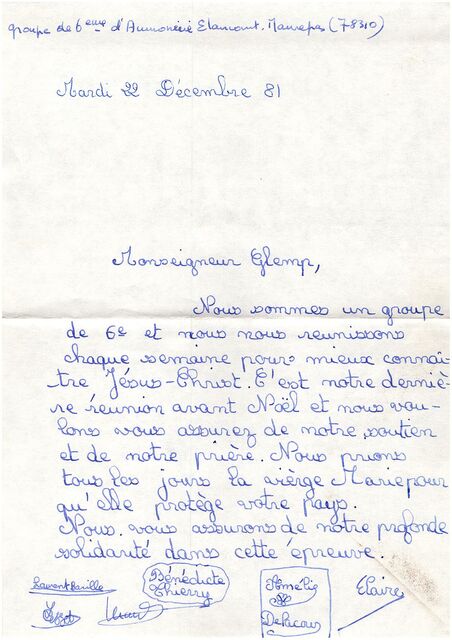 groupe de 6ème d'Aumonerie Elancourt. Maurepas (78310)
Mardi 22 Décembre 81
Monseigneur Glemp,
Nous sommes un groupe
de 6e et nous nous reunissons
chaque semaine pour mieux connaî-
tre Jésus-Christ. C'est notre derniè-
re réunion avant Noël et nous vou-
lons vous assurez de notre soutien
et de notre prière. Nous prions
tous les jours la vièrge Marie pour
qu'elle protège votre pays.
Nous vous assurons de notre profonde
solidarité dans cette épreuve.
Bénédicte
Thierry
Amélie
Claire